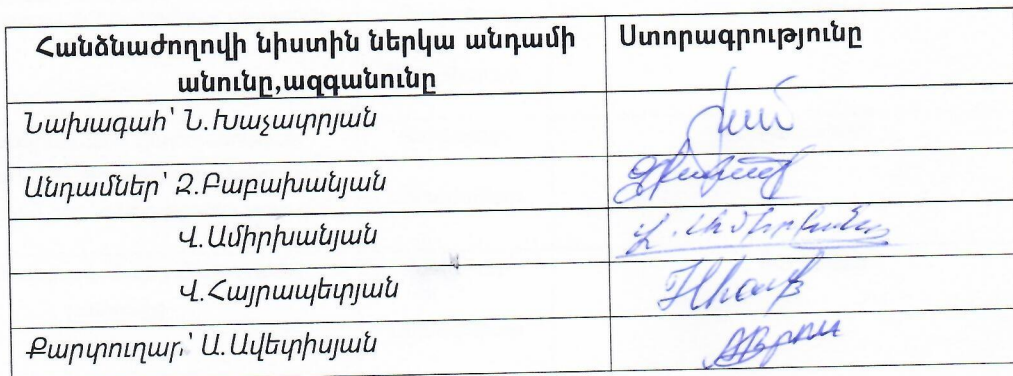 Հանձնաժողովի նիստին ներկա անդամի Ստորագրությունը
անունը,ազգանունը
Նախագահ՝ Ն.Խաչատրյան
Անդամներ՝ Զ.Բաբախանյան
Վ.Ամիրխանյան
Վ.Հայրապետյան
Քարտուղար՝ Ա.Ավետիսյան